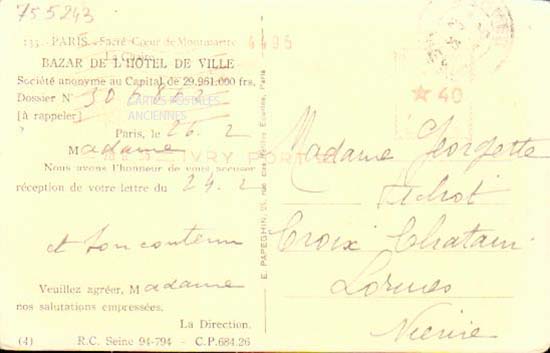 755243
133 - PARIS - Sacré-Cœur de Montmartre
4495
BAZAR DE L'HOTEL DE VILLE
Société anonyme au Capital de 29.961.000 frs.
Dossier N°
[à rappeler]
CARTES POSTALES
ANCIENNES
★ 40
Paris, le 26.2
Madame
IVRY PORT
Nous avons l'honneur de vous accuser
réception de votre lettre du 24.2
et son contenu
Veuillez agréer, Madame
nos salutations empressées.
La Direction.
(4) R.C. Seine 94-794 - C.P. 684.26
E. PAPEGHIN, Paris
Madame Georgette
Croix Chatain
Lormes
Nièvre